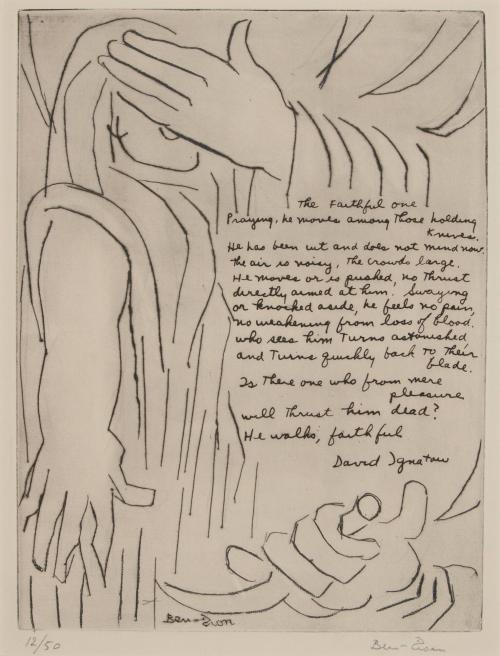 The Faithful one
Praying, he moves among Those holding
knives.
He has been cut and does not mind now.
the air is noisy, The crowds large.
He moves or is pushed, no Thrust
directly aimed at him. Swaying
or knocked aside, he feels no pain,
no weakening from loss of blood.
who sees him Turns astonished
and Turns quickly back To Their
blade.
Is There one who from mere
pleasure
will Thrust him dead?
He walks, faithful
David Ignatow
Ben-Zion
12/50
Ben-Zion